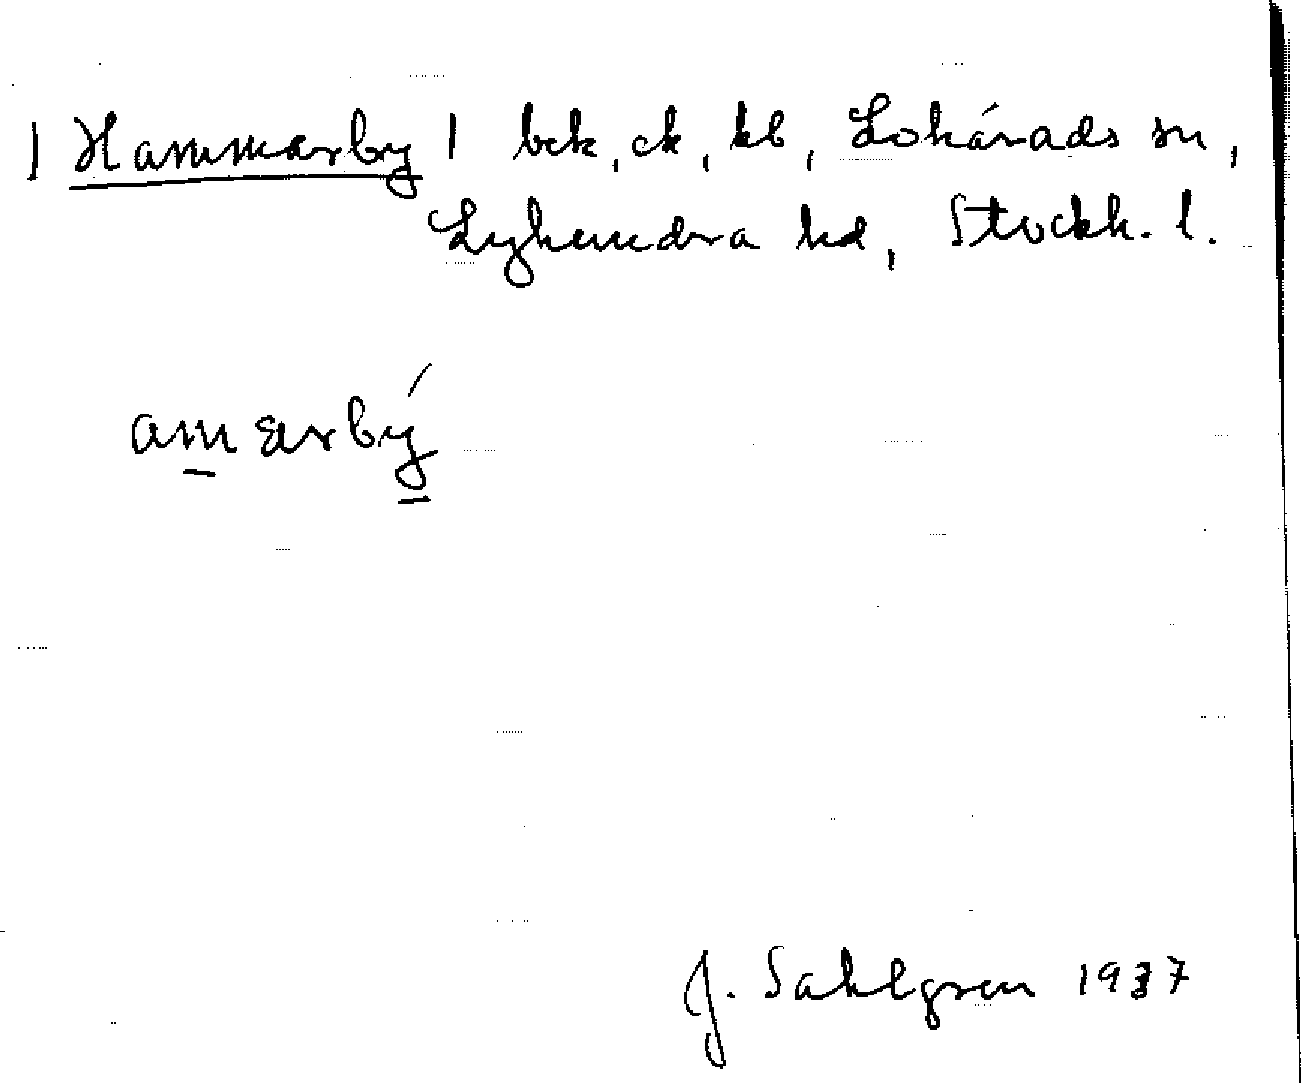 | Hammarby | bck, ck, kb, Lohárads sn,
Lyhundra hd, Stockh. l.
amarbý
J. Sahlgren 1937